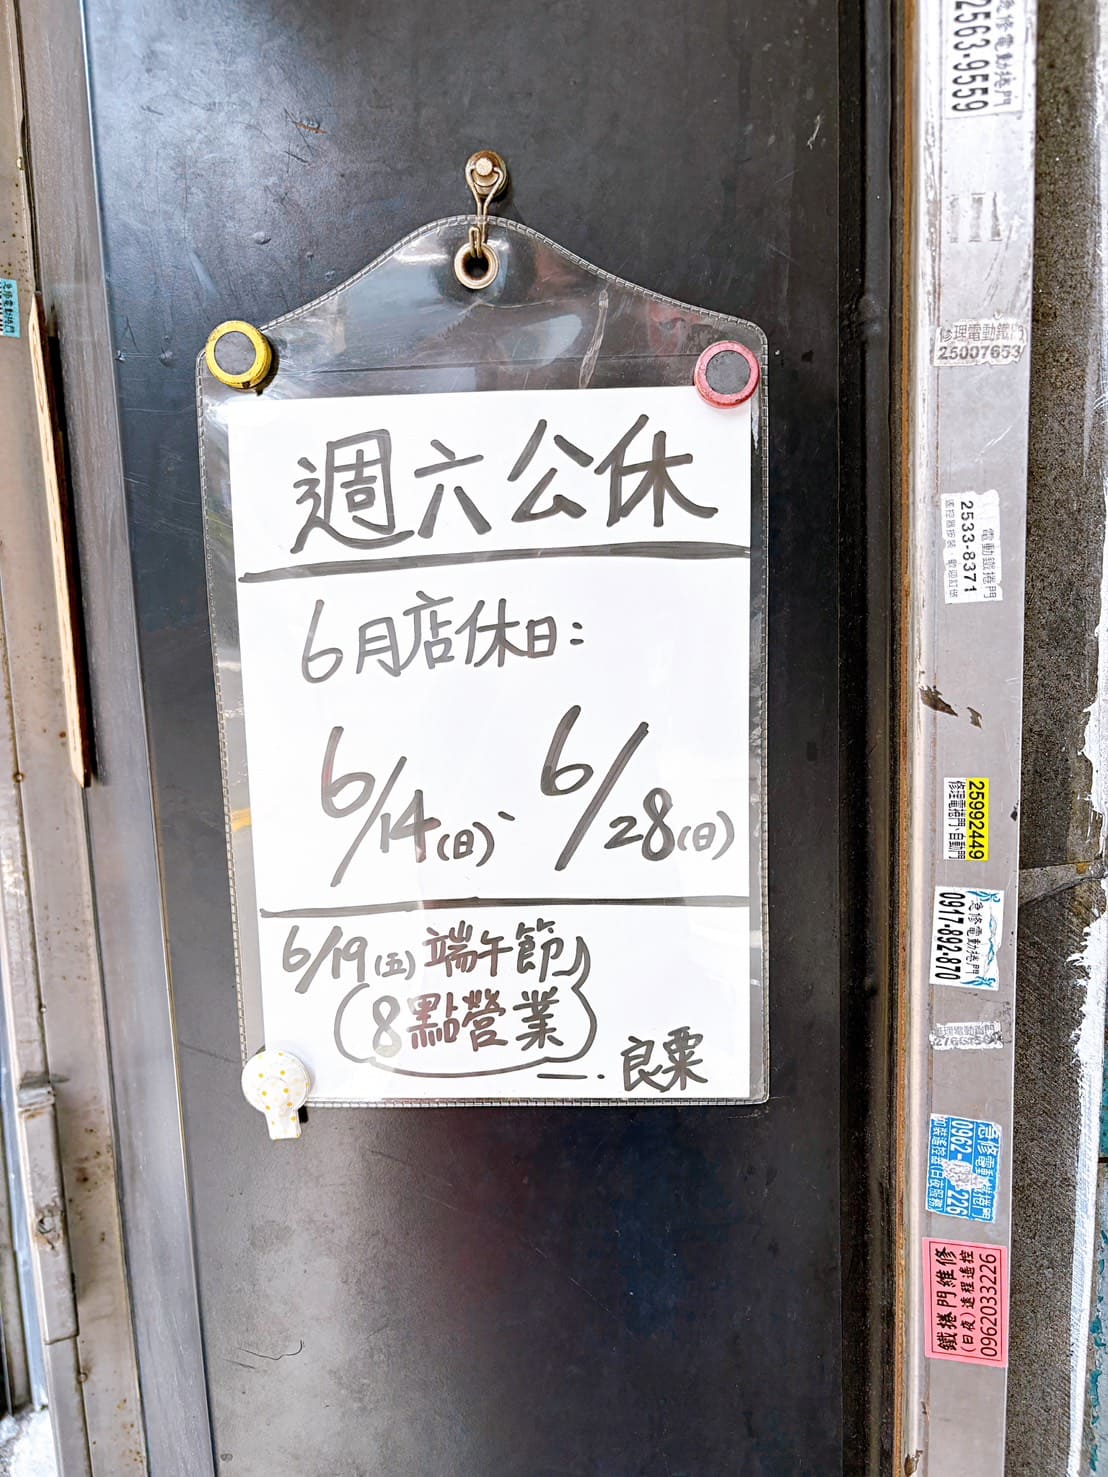 週六公休
6月店休日：
6/14(日)、6/28(日)
6/19(五)端午節
(8點營業)
良粟
急修電動捲門
2563-9559
修理電動鐵門
25007653
電動鐵捲門
2533-8371
遙控器按裝．歡迎訂做
25992449
修理電捲門、自動門
急修電動捲門
0917-892-870
急修電動捲門
0962-
226
加裝遙控器(日夜服務)
鐵捲門維修
(日夜)遠程遙控
0962033226
急修電動捲門